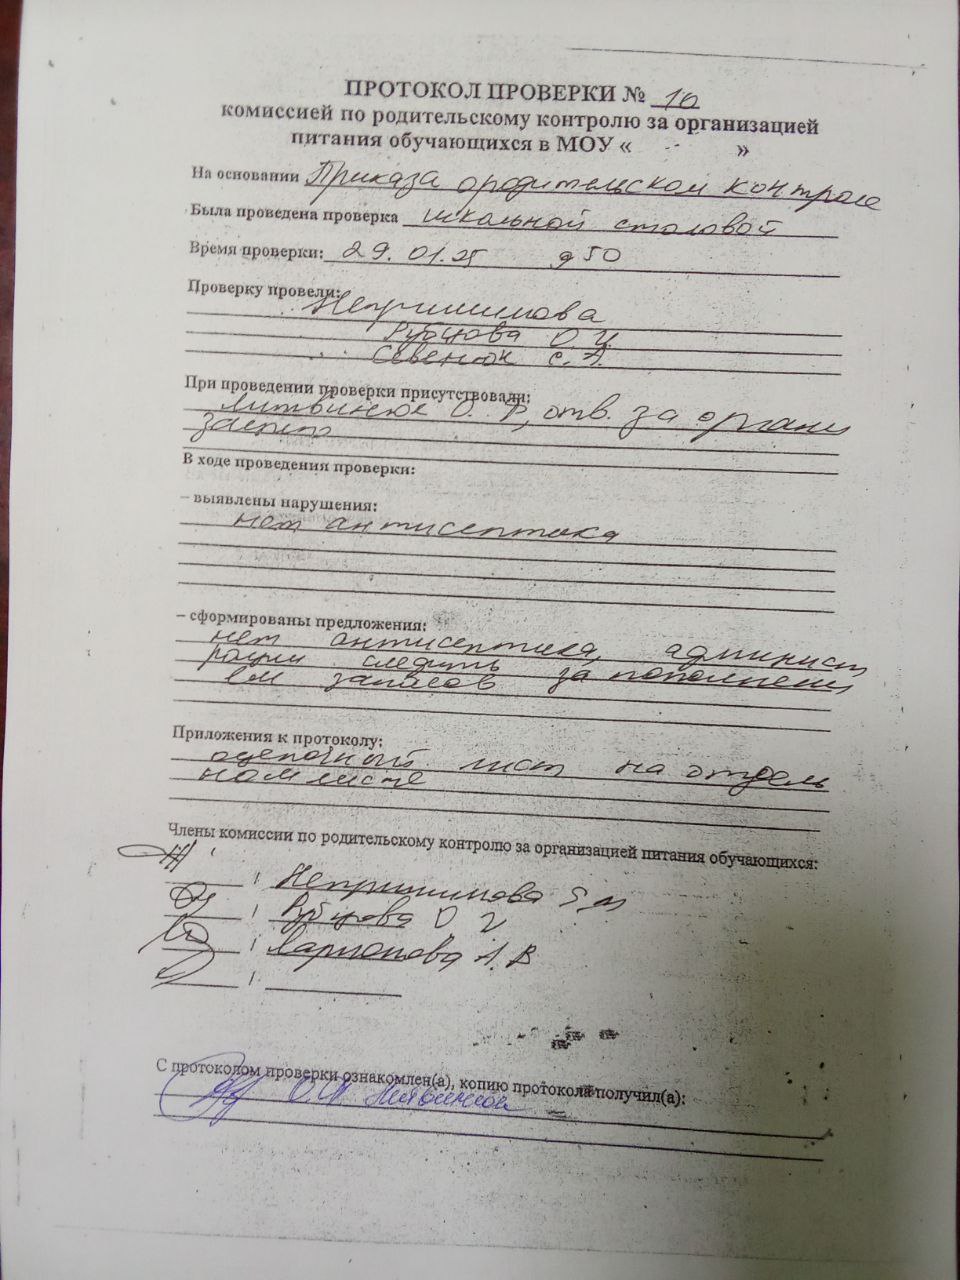 ПРОТОКОЛ ПРОВЕРКИ № 10
комиссией по родительскому контролю за организацией
питания обучающихся в МОУ « »
На основании Приказа о родительском контроле
Была проведена проверка школьной столовой
Время проверки: 29.01.25 9 50
Проверку провели:
Непришимова
Рубцова О
Севенюк С. А.
При проведении проверки присутствовали:
Литвинюк О. В, отв. за органи
В ходе проведения проверки:
– выявлены нарушения:
нет антисептика
– сформированы предложения:
нет антисептика, админист
рации следить за пополнени
ем запасов
Приложения к протоколу:
оценочный лист на отдель
ном листе
Члены комиссии по родительскому контролю за организацией питания обучающихся:
/ Непришимова
/ Рубцова О
/ Ларионова А. В
/
С протоколом проверки ознакомлен(а), копию протокола получил(а):